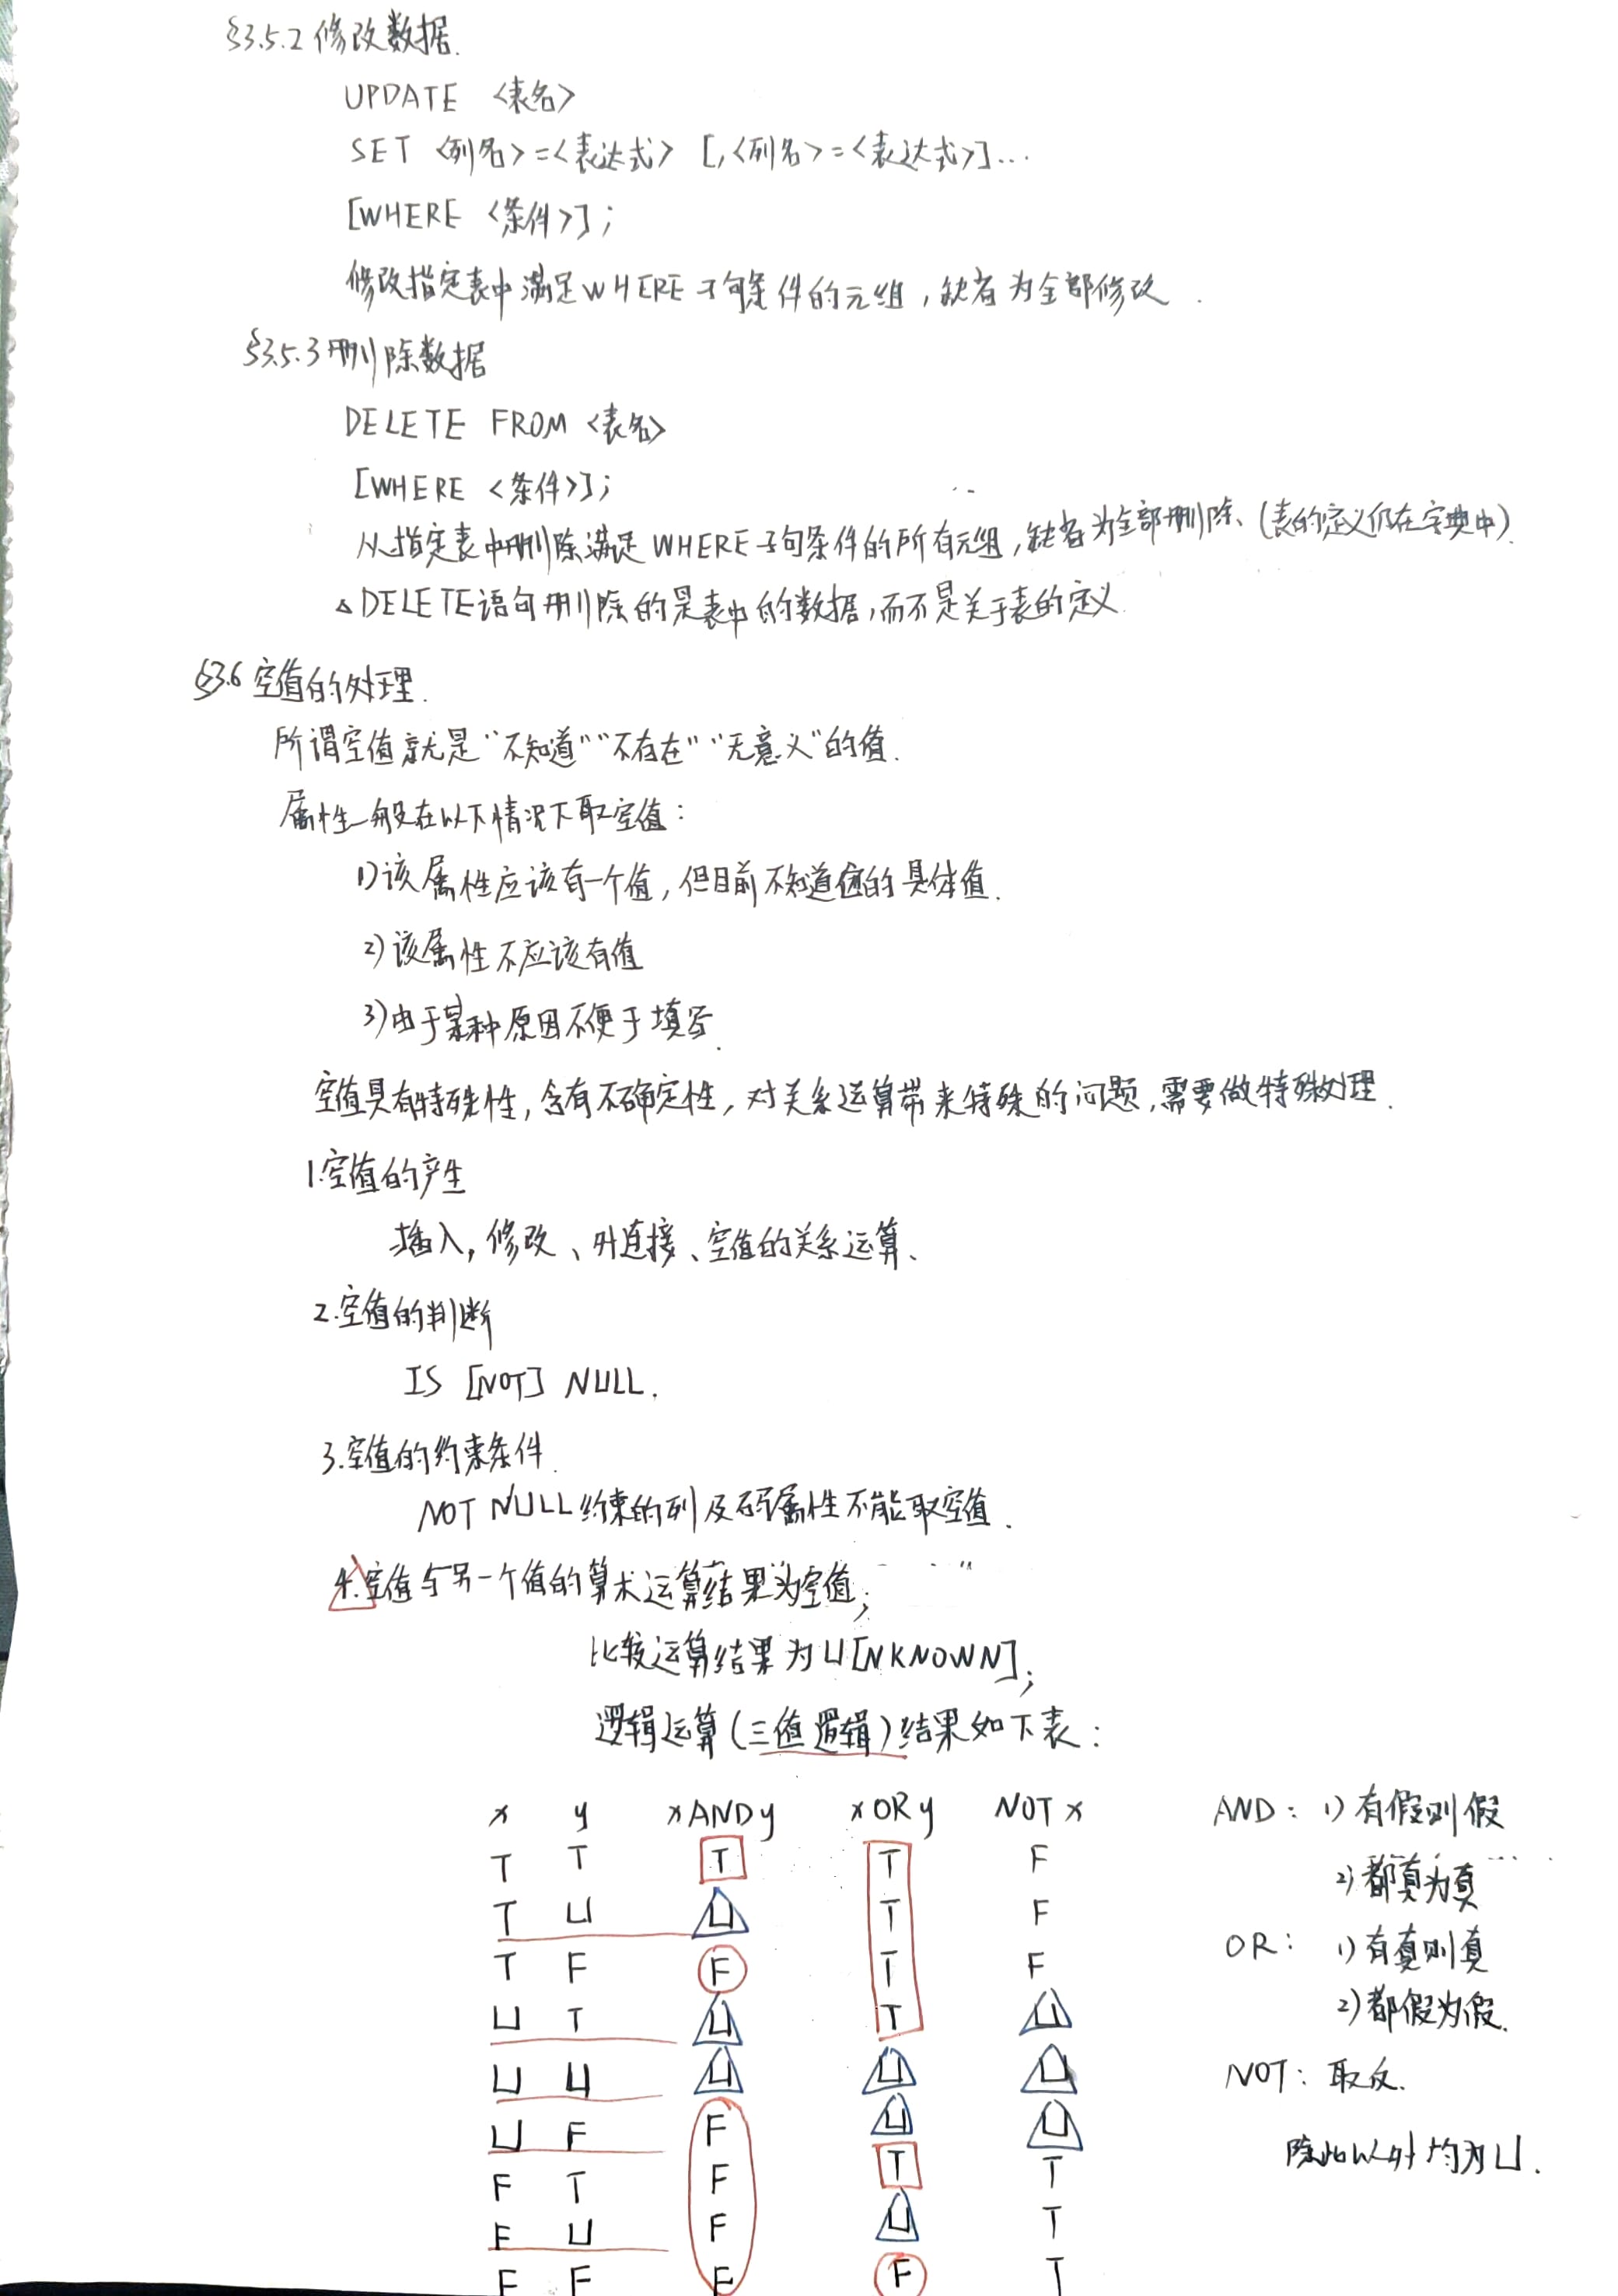 §3.5.2 修改数据.
UPDATE <表名>
SET <列名>=<表达式> [,<列名>=<表达式>]...
[WHERE <条件>];
修改指定表中满足WHERE子句条件的元组,缺省为全部修改.
§3.5.3 删除数据
DELETE FROM <表名>
[WHERE <条件>];
从指定表中删除满足WHERE子句条件的所有元组,缺省为全部删除、(表的定义仍在字典中).
△DELETE语句删除的是表中的数据,而不是关于表的定义.
§3.6 空值的处理.
所谓空值就是"不知道""不存在""无意义"的值.
属性一般在以下情况下取空值:
1)该属性应该有一个值,但目前不知道它的具体值.
2)该属性不应该有值
3)由于某种原因不便于填写.
空值具有特殊性,含有不确定性,对关系运算带来特殊的问题,需要做特殊处理.
1.空值的产生
插入,修改、外连接、空值的关系运算、
2.空值的判断
IS [NOT] NULL.
3.空值的约束条件.
NOT NULL约束的列及码属性不能取空值.
4.空值与另一个值的算术运算结果为空值;
比较运算结果为U[NKNOWN];
逻辑运算(三值逻辑)结果如下表:
x y x AND y x OR y NOT x
T T T T F
T U U T F
T F F T F
U T U T U
U U U U U
U F F U U
F T F T T
F U F U T
F F F F T
AND: 1)有假则假
2)都真为真
OR: 1)有真则真
2)都假为假.
NOT: 取反.
除此以外均为U.